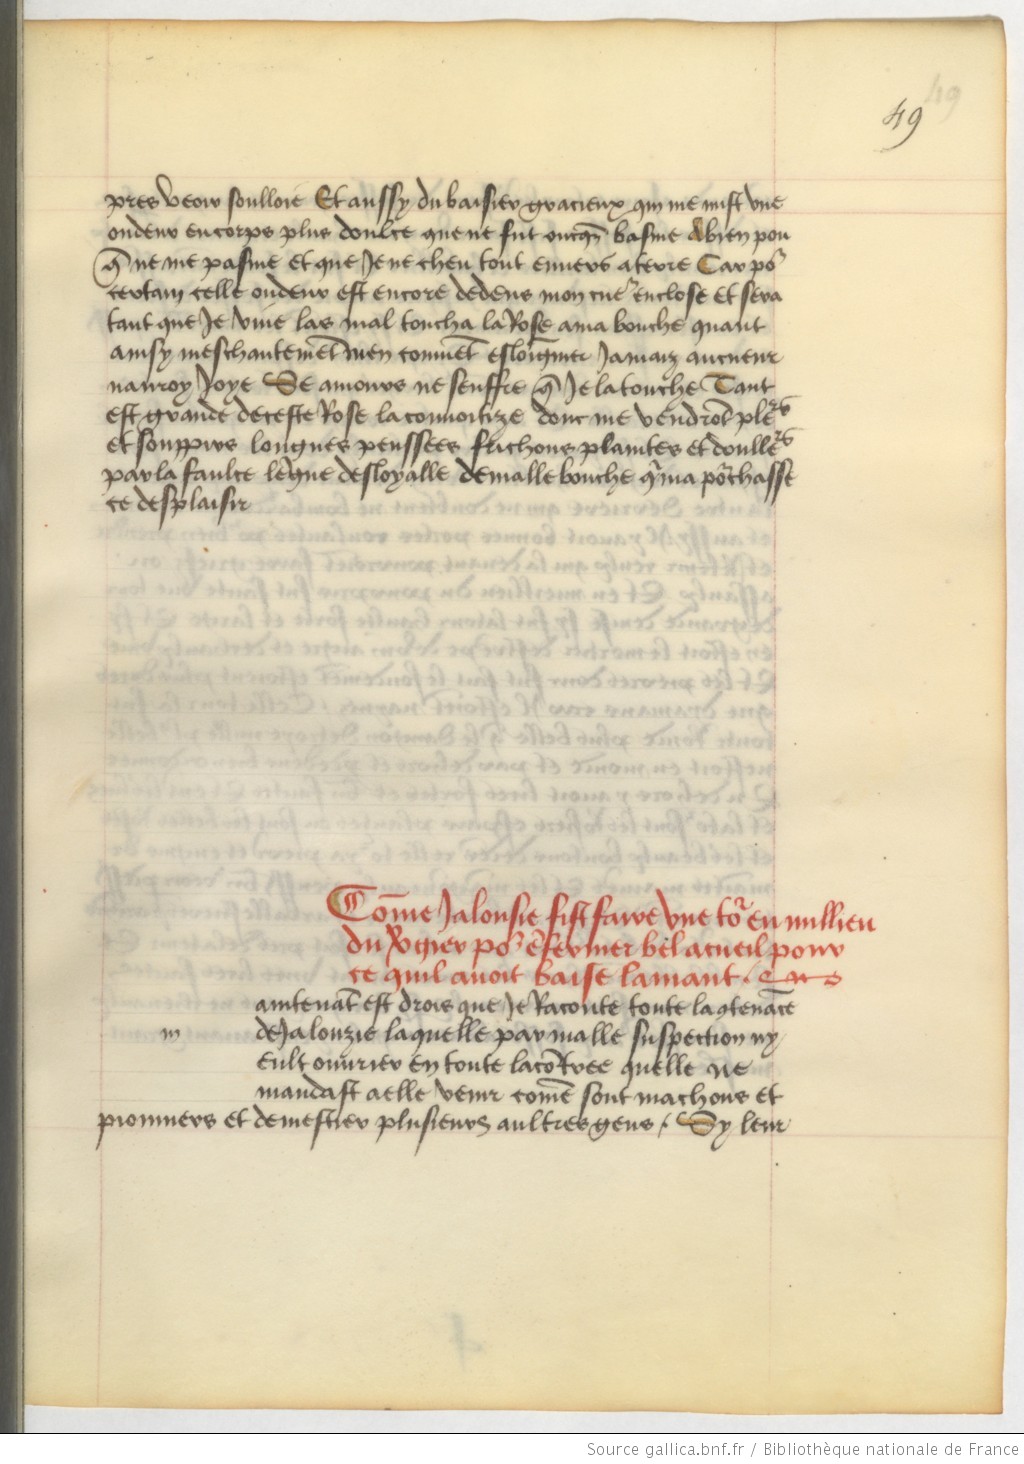 49
pres veoir soulloie Et aussy du baisier gracieux qui me mist une
oudeur en corps plus doulce que ne fut oncq̃s basme A bien pou
q̃ ne me pasme et que Je ne cheu tout envers a terre Car po͛
certain celle oudeur est encore dedens mon cue͛ enclose et sera
tant que Je vive las mal toucha la Rose a ma bouche quant
ainsy meschantemẽt men convieẽt esloingner Jamaiz aucneur
nauroy Joye Se amours ne seuffre q̃ Je la touche Tant
est grande de ceste Rose la convoitize donc me vendrõt ple͛s
et souppirs longues penssees frichons plaintes et doulle͛s
par la faulce lẽgue desloyalle de malle bouche q̃ ma po͛chasse
ce desplaisir
Cõme Jalousie fist faire une to͛ en millieu
du v̾gier po͛ ẽfermer bel acueil pour
ce quil avoit baise lamant
aintenãt est drois que Je Raconte toute la ꝯtenãce
m de Jalouzie laquelle par malle suspection ny
eult ouvrier en toute la cõtree quelle ne
mandast a elle venir comẽ sont machons et
pionniers et de mestier plusieurs aultres gens / Sy leur
Source gallica.bnf.fr / Bibliothèque nationale de France